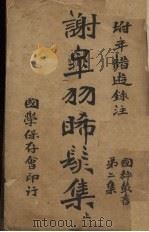 坿年譜遊錄注
國粹叢書
第二集
謝皐羽晞髮集
國學保存會印行